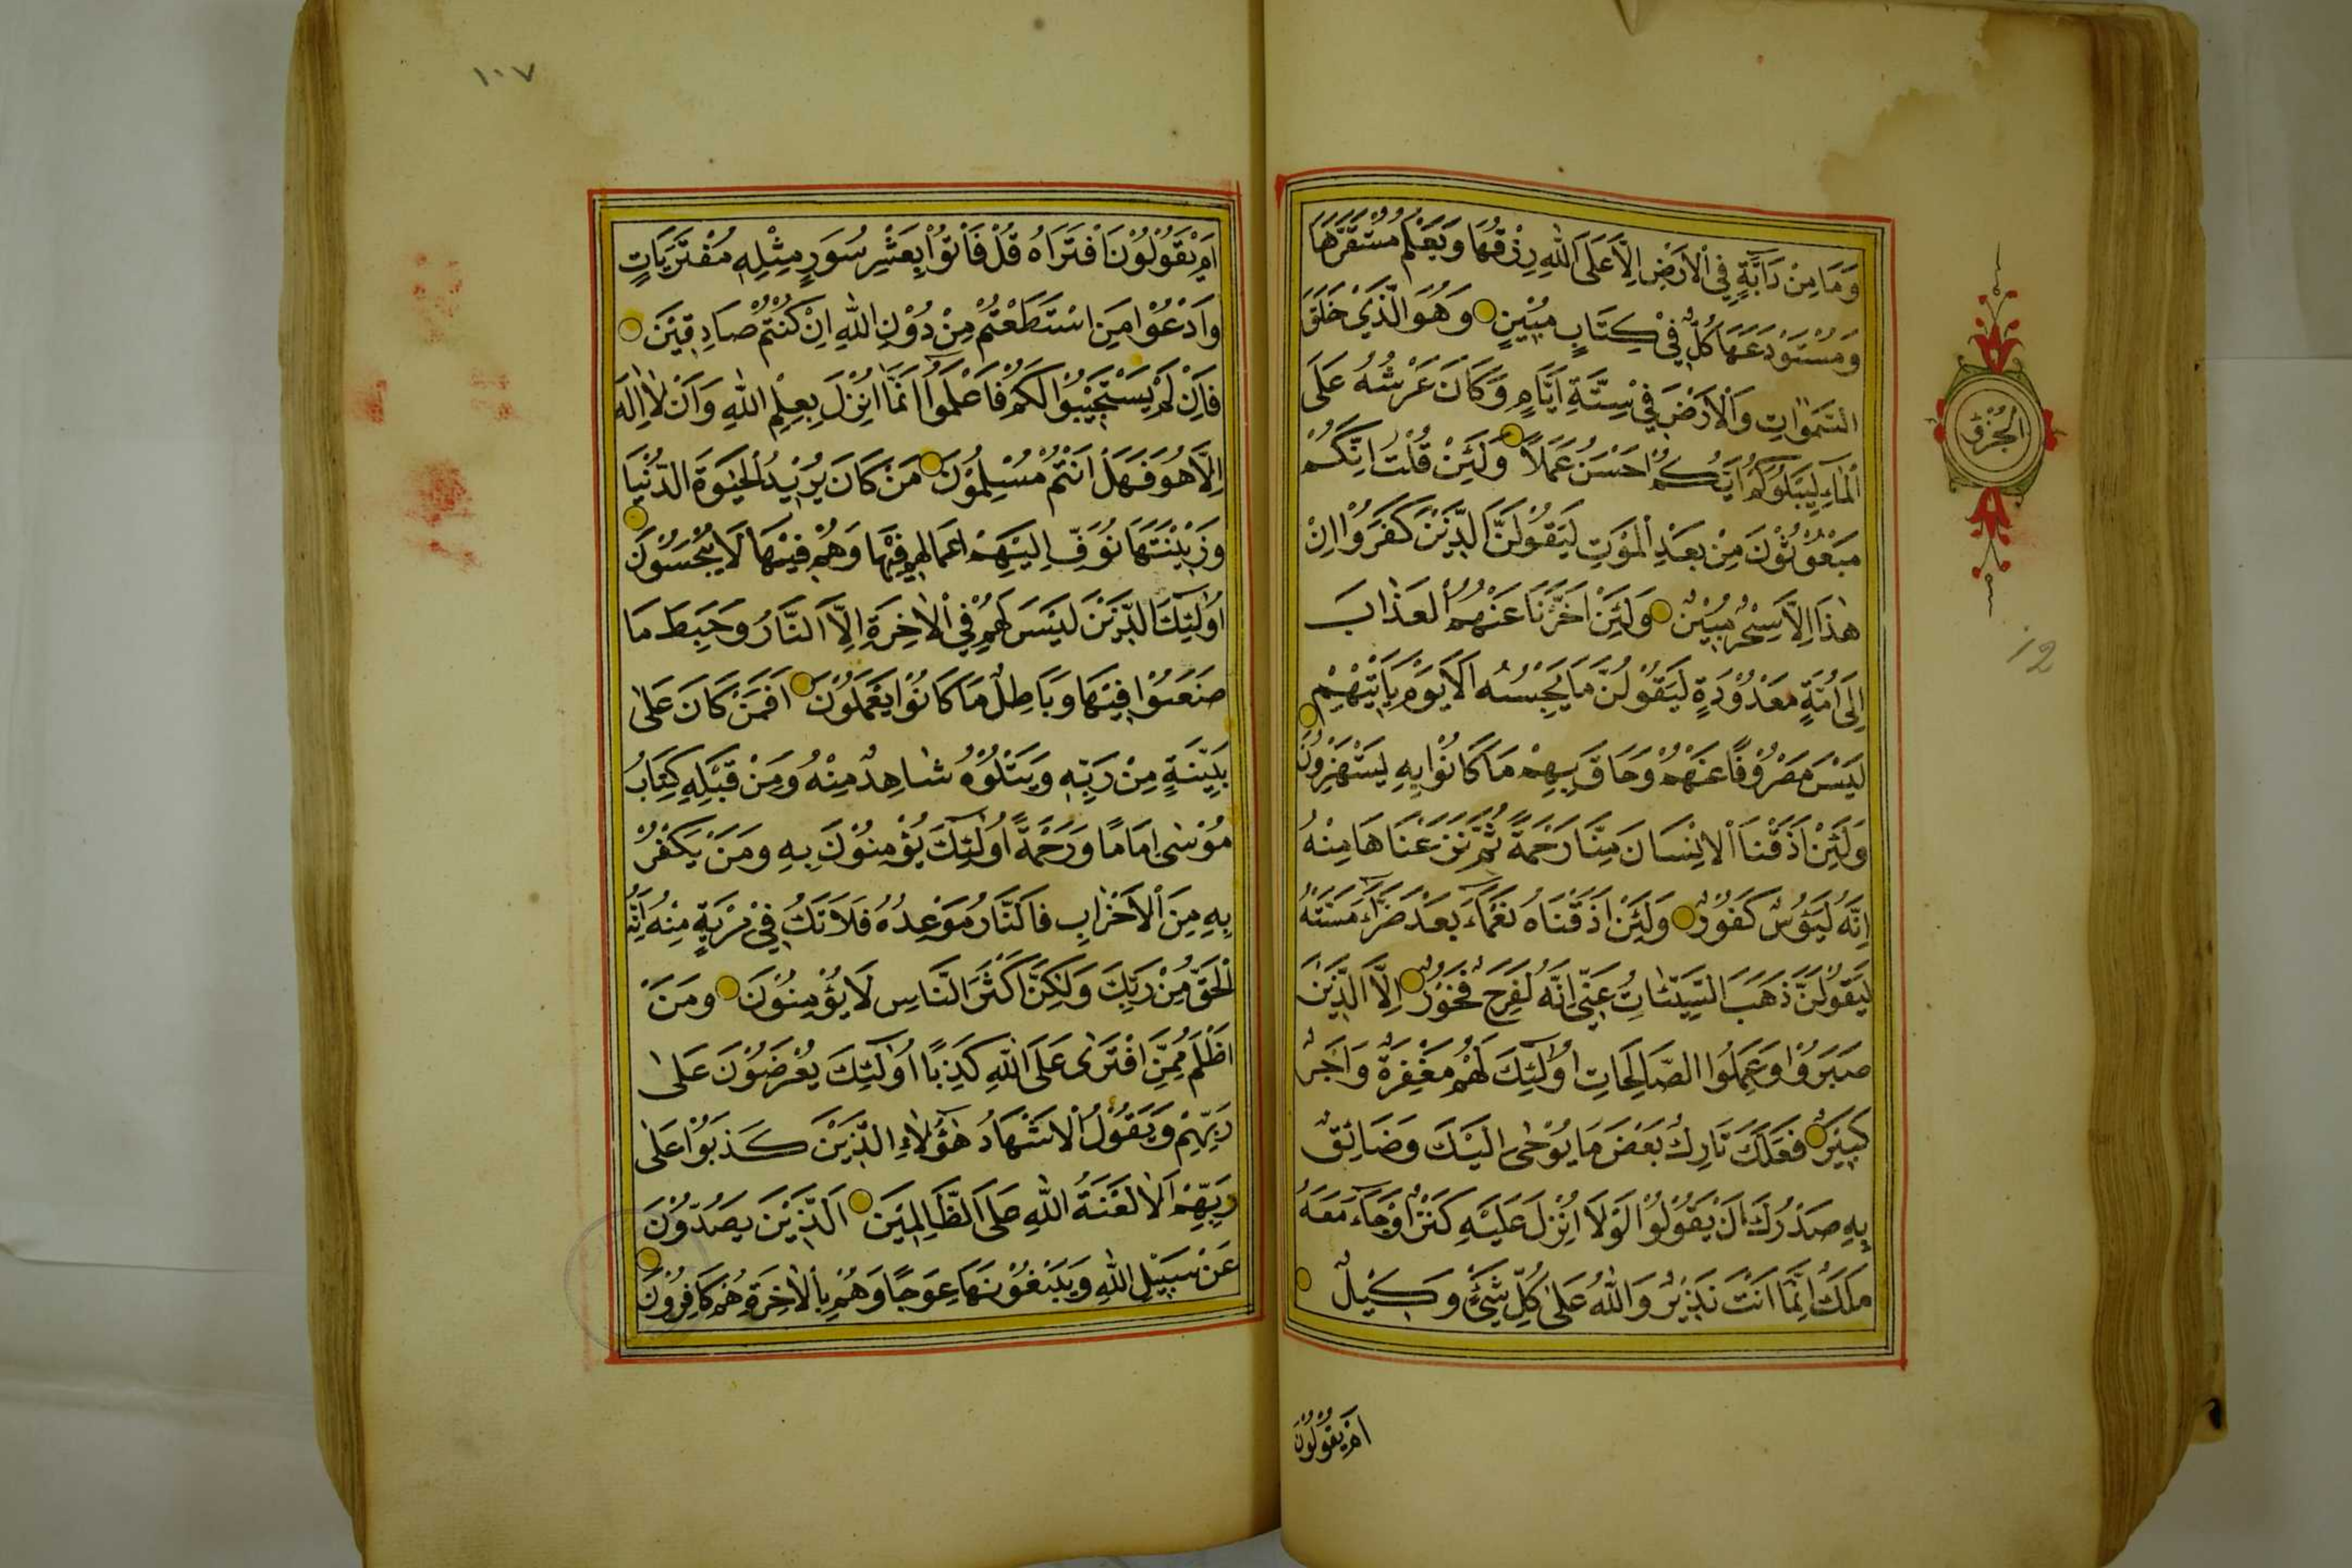 وَمَا مِنْ دَابَّةٍ فِي الْاَرْضِ اِلَّا عَلَى اللّٰهِ رِزْقُهَا وَيَعْلَمُ مُسْتَقَرَّهَا
وَمُسْتَوْدَعَهَا كُلٌّ فِي كِتَابٍ مُبِيْنٍ وَهُوَ الَّذَيْ خَلَقَ
السَّمٰوَاتِ وَالْاَرْضَ فِي سِتَّةِ اَيَّامٍ وَّكَانَ عَرْشُهُ عَلَى
الْمَآءِ لِيَبْلُوَكُمْ اَيُّكُمْ اَحْسَنُ عَمَلاً وَلَئِنْ قُلْتَ اِنَّكُمْ
مَبْعُوْثُوْنَ مِنْ بَعْدِ الْمَوْتِ لَيَقُوْلَنَّ الَّذِيْنَ كَفَرُوْا اِنْ
هٰذَا اِلَّا سِحْرٌ مُبِيْنٌ وَلَئِنْ اَخَّرْنَا عَنْهُمُ الْعَذَابَ
اِلَى اُمَّةٍ مَعْدُوْدَةٍ لَيَقُوْلُنَّ مَا يَحْبِسُهُ اَلَا يَوْمَ يَاْتِيْهِمْ
لَيْسَ مَصْرُوْفًا عَنْهُمْ وَحَاقَ بِهِمْ مَا كَانُوْا بِهِ يَسْتَهْزِؤُنَ
وَلَئِنْ اَذَقْنَا الْاِنْسَانَ مِنَّا رَحْمَةً ثُمَّ نَزَعْنَاهَا مِنْهُ
اِنَّهُ لَيَؤُسٌ كَفُوْرٌ وَلَئِنْ اَذَقْنَاهُ نَعْمَآءَ بَعْدَ ضَرَّآءَ مَسَّتْهُ
لَيَقُوْلَنَّ ذَهَبَ السَّيِّئَاتُ عَنِّي اِنَّهُ لَفَرِحٌ فَخُوْرٌ اِلَّا الَّذِيْنَ
صَبَرُوْا وَعَمِلُوا الصَّالِحَاتِ اُولٰٓئِكَ لَهُمْ مَغْفِرَةٌ وَاَجْرٌ
كَبِيْرٌ فَلَعَلَّكَ تَارِكٌ بَعْضَ مَا يُوْحٰى اِلَيْكَ وَضَائِقٌ
بِهِ صَدْرُكَ اَنْ يَقُوْلُوْا لَوْلَا اُنْزِلَ عَلَيْهِ كَنْزٌ اَوْ جَآءَ مَعَهُ
مَلَكٌ اِنَّمَا اَنْتَ نَذِيْرٌ وَاللّٰهُ عَلٰى كُلِّ شَيْءٍ وَكِيْلٌ
اَمْ يَقُوْلُوْنَ
الجزؤ
12
١٠٧
اَمْ يَقُوْلُوْنَ افْتَرَاهُ قُلْ فَاْتُوْا بِعَشْرِ سُوَرٍ مِثْلِهِ مُفْتَرَيَاتٍ
وَادْعُوْا مَنِ اسْتَطَعْتُمْ مِنْ دُوْنِ اللّٰهِ اِنْ كُنْتُمْ صَادِقِيْنَ
فَاِنْ لَمْ يَسْتَجِيْبُوْا لَكُمْ فَاعْلَمُوْا اَنَّمَا اُنْزِلَ بِعِلْمِ اللّٰهِ وَاَنْ لَا اِلٰهَ
اِلَّا هُوَ فَهَلْ اَنْتُمْ مُسْلِمُوْنَ مَنْ كَانَ يُرِيْدُ الْحَيٰوةَ الدُّنْيَا
وَزِيْنَتَهَا نُوَفِّ اِلَيْهِمْ اَعْمَالَهُمْ فِيْهَا وَهُمْ فِيْهَا لَا يُبْخَسُوْنَ
اُولٰٓئِكَ الَّذِيْنَ لَيْسَ لَهُمْ فِي الْاٰخِرَةِ اِلَّا النَّارُ وَحَبِطَ مَا
صَنَعُوْا فِيْهَا وَبَاطِلٌ مَا كَانُوْا يَعْمَلُوْنَ اَفَمَنْ كَانَ عَلٰى
بَيِّنَةٍ مِنْ رَبِّهِ وَيَتْلُوْهُ شَاهِدٌ مِنْهُ وَمِنْ قَبْلِهِ كِتَابُ
مُوْسٰى اِمَامًا وَرَحْمَةً اُولٰٓئِكَ يُؤْمِنُوْنَ بِهِ وَمَنْ يَكْفُرْ
بِهِ مِنَ الْاَحْزَابِ فَالنَّارُ مَوْعِدُهُ فَلَا تَكُ فِي مِرْيَةٍ مِنْهُ اِنَّهُ
الْحَقُّ مِنْ رَبِّكَ وَلٰكِنَّ اَكْثَرَ النَّاسِ لَا يُؤْمِنُوْنَ وَمَنْ
اَظْلَمُ مِمَّنِ افْتَرٰى عَلَى اللّٰهِ كَذِبًا اُولٰٓئِكَ يُعْرَضُوْنَ عَلٰى
رَبِّهِمْ وَيَقُوْلُ الْاَشْهَادُ هٰؤُلَاءِ الَّذِيْنَ كَذَبُوْا عَلٰى
رَبِّهِمْ اَلَا لَعْنَةُ اللّٰهِ عَلَى الظَّالِمِيْنَ اَلَّذِيْنَ يَصُدُّوْنَ
عَنْ سَبِيْلِ اللّٰهِ وَيَبْغُوْنَهَا عِوَجًا وَهُمْ بِالْاٰخِرَةِ هُمْ كَافِرُوْنَ